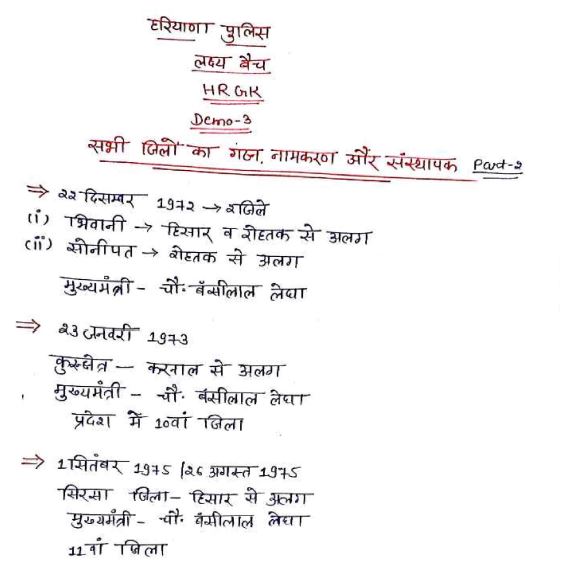 हरियाणा पुलिस
लक्ष्य बैच
HR GK
Demo-3
सभी जिलों का गठन, नामकरण और संस्थापक Part-2
⇒ 22 दिसम्बर 1972 → 2 जिले
(i) भिवानी → हिसार व रोहतक से अलग
(ii) सोनीपत → रोहतक से अलग
मुख्यमंत्री - चौ. बंसीलाल लेघा
⇒ 23 जनवरी 1973
कुरुक्षेत्र - करनाल से अलग
मुख्यमंत्री - चौ. बंसीलाल लेघा
प्रदेश में 10वां जिला
⇒ 1 सितंबर 1975 / 26 अगस्त 1975
सिरसा जिला - हिसार से अलग
मुख्यमंत्री - चौ. बंसीलाल लेघा
11वां जिला